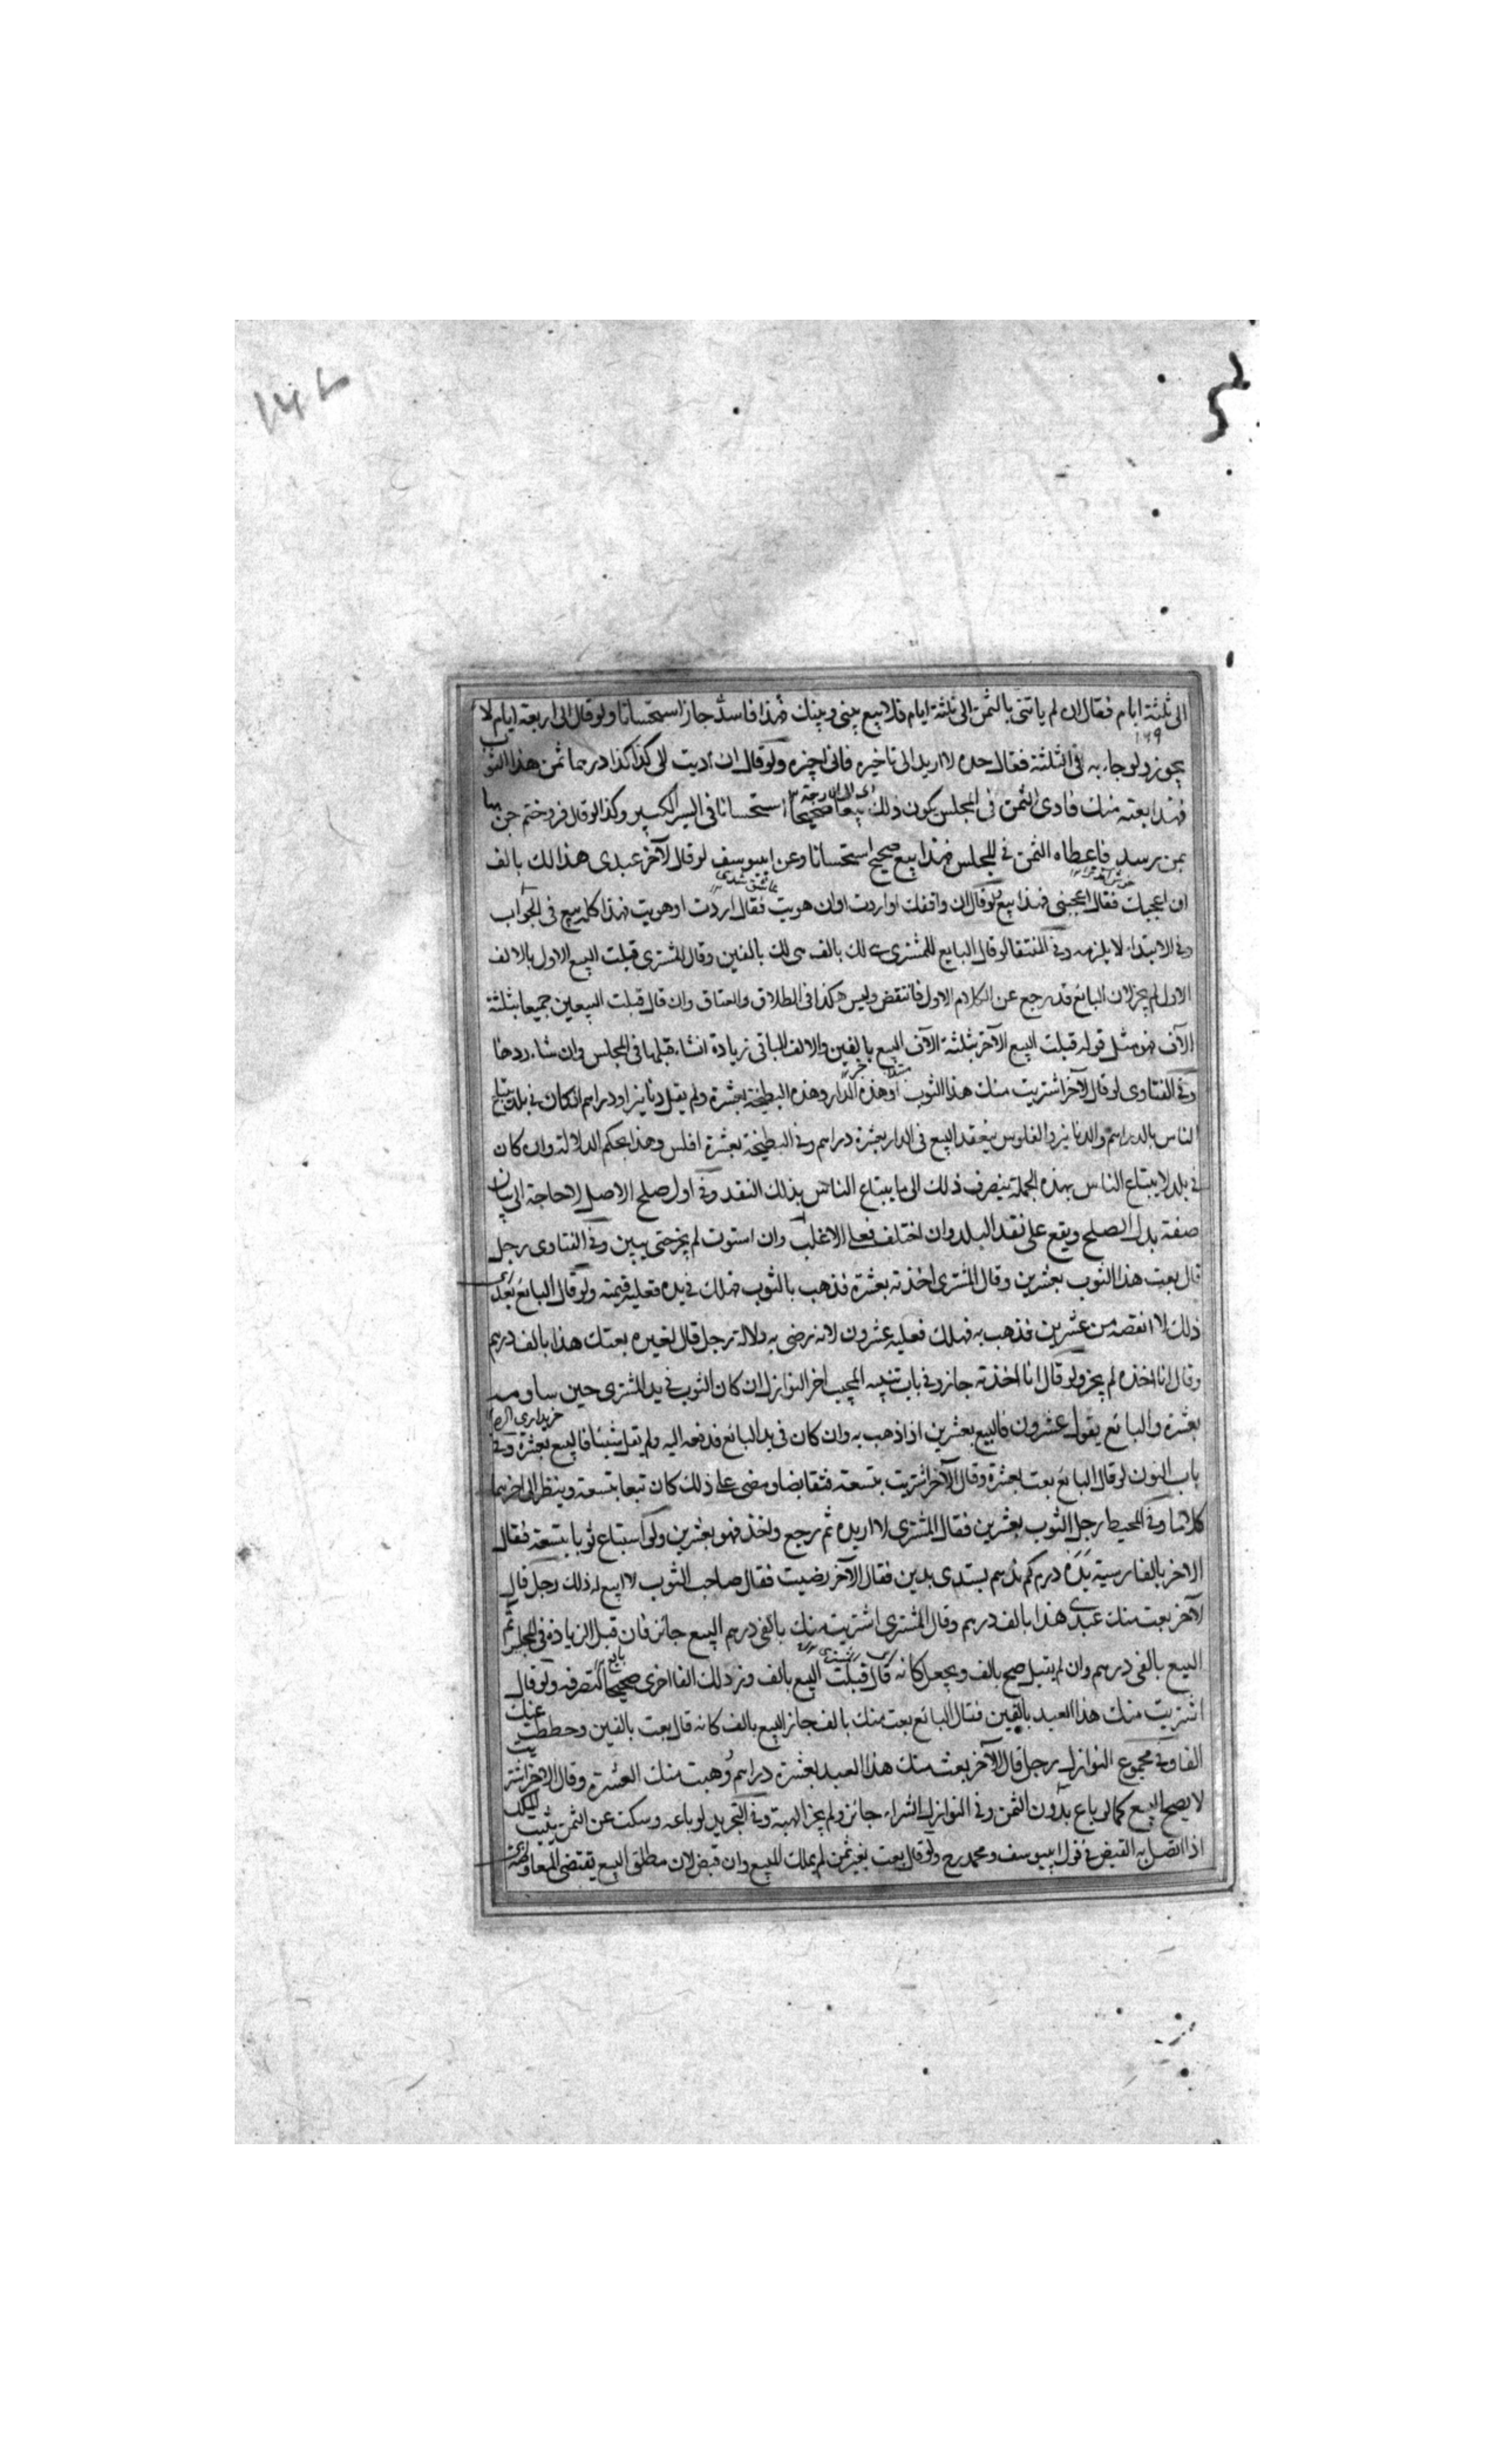 الى ثلثة ايام فقال ان لم ياتنى بالثمن الى ثلثة ايام فلا بيع بينى وبينك فهذا فاسد جاز استحسانا ولو قال الى اربعة ايام لا
يجوز ولو جاء به فى الثلثة فقال خذه لا اريد الى تاخيره فانى اجزه ولو قال ان اديت الى كذا كذا درهما ثمن هذا الثوب
فهذا بعته منك فادى الثمن فى المجلس يكون ذلك بيعا صحيحا استحسانا فى السير الكبير وكذا لو قال فروختم چن بها
بمن برسد فاعطاه الثمن فى المجلس فهذا بيع صحيح استحسانا وعن ابيوسف لو قال لآخر عبدى هذا لك بالف
ان اعجبك فقال اعجبنى فهذا بيع ولو قال ان وافقك او اردت او ان هويت فقال اردت او هويت فهذا كله بيع فى الجواب
وفى الابتداء لا يلزمه وفى المنتقا لو قال البايع للمشترى لك بالف لك بالفين وقال المشترى قبلت البيع الاول بالالف
الاول لم يجز لان البائع قد رجع عن الكلام الاول فانتقض وليس هكذا فى الطلاق والعتاق وان قال قبلت البيعين جميعا بثلثة
الآف فهو مثل قوله قبلت البيع الآخر بثلثة الآف البيع بالفين والالف الباقى زيادة انشاء قبلها فى المجلس وان شاء ردها
وفى الفتاوى لو قال لآخر اشتريت منك هذا الثوب او هذه الدار وهذه البطيخة بعشرة ولم يقل دنانير او دراهم ان كان فى بلد يبتاع
الناس بالدراهم والدنانير والفلوس ينعقد البيع فى الدار بعشرة دراهم وفى البطيخة بعشرة افلس وهذا بحكم الدلالة وان كان
فى بلد لا يبتاع الناس بهذه الجملة ينصرف ذلك الى ما يبتاع الناس بذلك النقد وفى اول صلح الاصل لا حاجة الى بيان
صفة بدل الصلح ويقع على نقد البلد وان اختلف فعلى الاغلب وان استوت لم يجز حتى يبين وفى الفتاوى رجل
قال بعت هذا الثوب بعشرين وقال المشترى اخذته بعشرة فذهب بالثوب فهلك فى يده فعليه قيمته ولو قال البائع بعد
ذلك لا انقصه من عشرين فذهب به فهلك فعليه عشرون لانه رضى به دلالة رجل قال لغيره بعتك هذا بالف درهم
وقال انا اخذه لم يجز ولو قال انا اخذته جاز وفى باب تنبيه المجيب اخر النوازل ان كان الثوب فى يد المشترى حين ساومه
بعشرة والبائع يقول عشرون فالبيع بعشرين اذا ذهب به وان كان فى يد البائع فدفعه اليه ولم يقل شيئا فالبيع بعشرة وفى
باب النون لو قال البائع بعت بعشرة وقال الآخر اشتريت بتسعة فتقابضا ومضى على ذلك كان تبعا بتسعة وينظر الى اخرهما
كلاما وفى المحيط رجل الثوب بعشرين فقال المشترى لا اريده ثم رجع واخذ فهو بعشرين ولو استباع ثوبا بتسعة فقال
الاخر بالفارسية بده درم كم ندهم بدين فقال الآخر رضيت فقال صاحب الثوب لا ابيع له ذلك رجل قال
لآخر بعت منك عبدى هذا بالف درهم وقال المشترى اشتريت منك بالفى درهم البيع جائز فان قبل الزيادة فى المجلس تم
البيع بالفى درهم وان لم يقبل صح بالف ويجعل كانه قال قبلت البيع بالف وزدلك الفا اخرى صحيحا لتصرفه ولو قال
اشتريت منك هذا العبد بالفين فقال البائع بعت منك بالف جاز البيع بالف كانه قال بعت بالفين وحططت عنك
الفا وفى مجموع النوازل رجل قال لآخر بعت منك هذا العبد بعشرة دراهم وهبت منك العشرة وقال الاخر اشتريت
لا يصح البيع كما لو باع بدون الثمن وفى النوازل الشراء جائز ولم يجز الهبة وفى التجريد لو باعه وسكت عن الثمن يثبت الملك
اذا اتصل به القبض فى قول ابيوسف ومحمد رح ولو قال بعت بغير ثمن لم يملك المبيع وان قبض لان مطلق البيع يقتضى المعاوضة